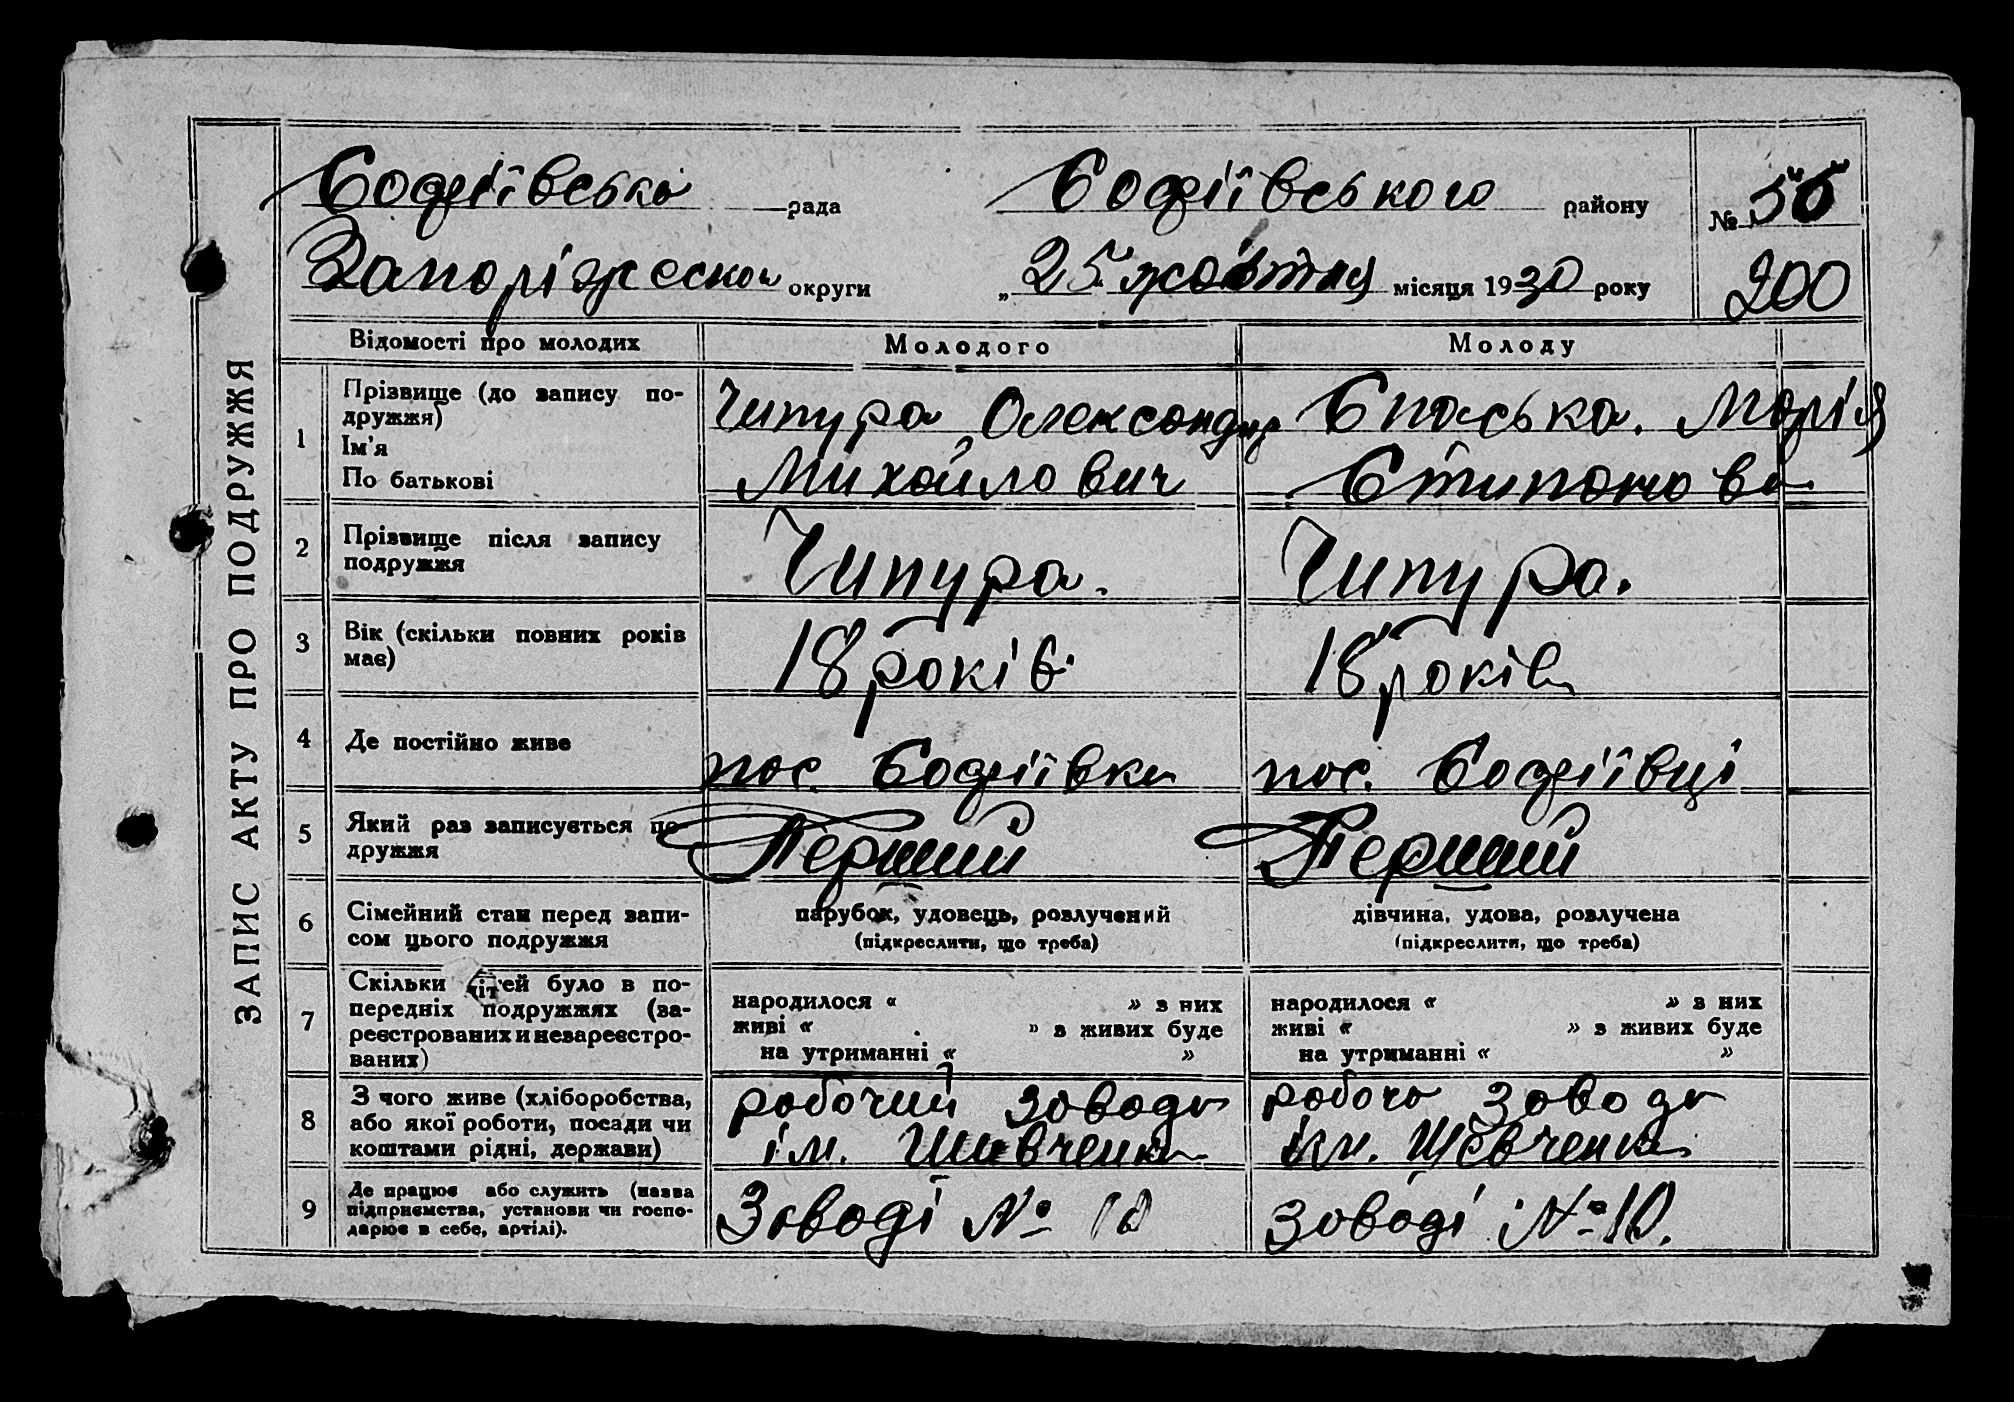 ЗАПИС АКТУ ПРО ПОДРУЖЖЯ
Софіївська рада Софіївського району № 55
Запоріжеської округи „25 жовтня місяця 1930 року 200
Відомості про молодих Молодого Молоду
1 Прізвище (до запису по-
дружжя)
Ім'я
По батькові
Чипура Олександр
Михайлович
Спаська. Марія
Стипонова
2 Прізвище після запису
подружжя
Чипура.
Чипура.
3 Вік (скільки повних років
має)
18 років
18 років
4 Де постійно живе
пос. Софіївка
пос. Софіївці
5 Який раз записується по-
дружжя
Перший
Перший
6 Сімейний стан перед запи-
сом цього подружжя
парубок, удовець, розлучений
(підкреслити, що треба)
дівчина, удова, розлучена
(підкреслити, що треба)
7 Скільки дітей було в по-
передніх подружжях (за-
реєстрованих и незареєстро-
ваних)
народилося « » з них
живі « » з живих буде
на утриманні « »
народилося « » з них
живі « » з живих буде
на утриманні « »
8 З чого живе (хліборобства,
або якої роботи, посади чи
коштами рідні, держави)
робочий заводу
ім. Шивченка
робоча заводу
ім. Шевченка
9 Де працює або служить (назва
підприємства, установи чи госпо-
дарює в себе, артілі).
Заводі № 10
Заводі № 10.